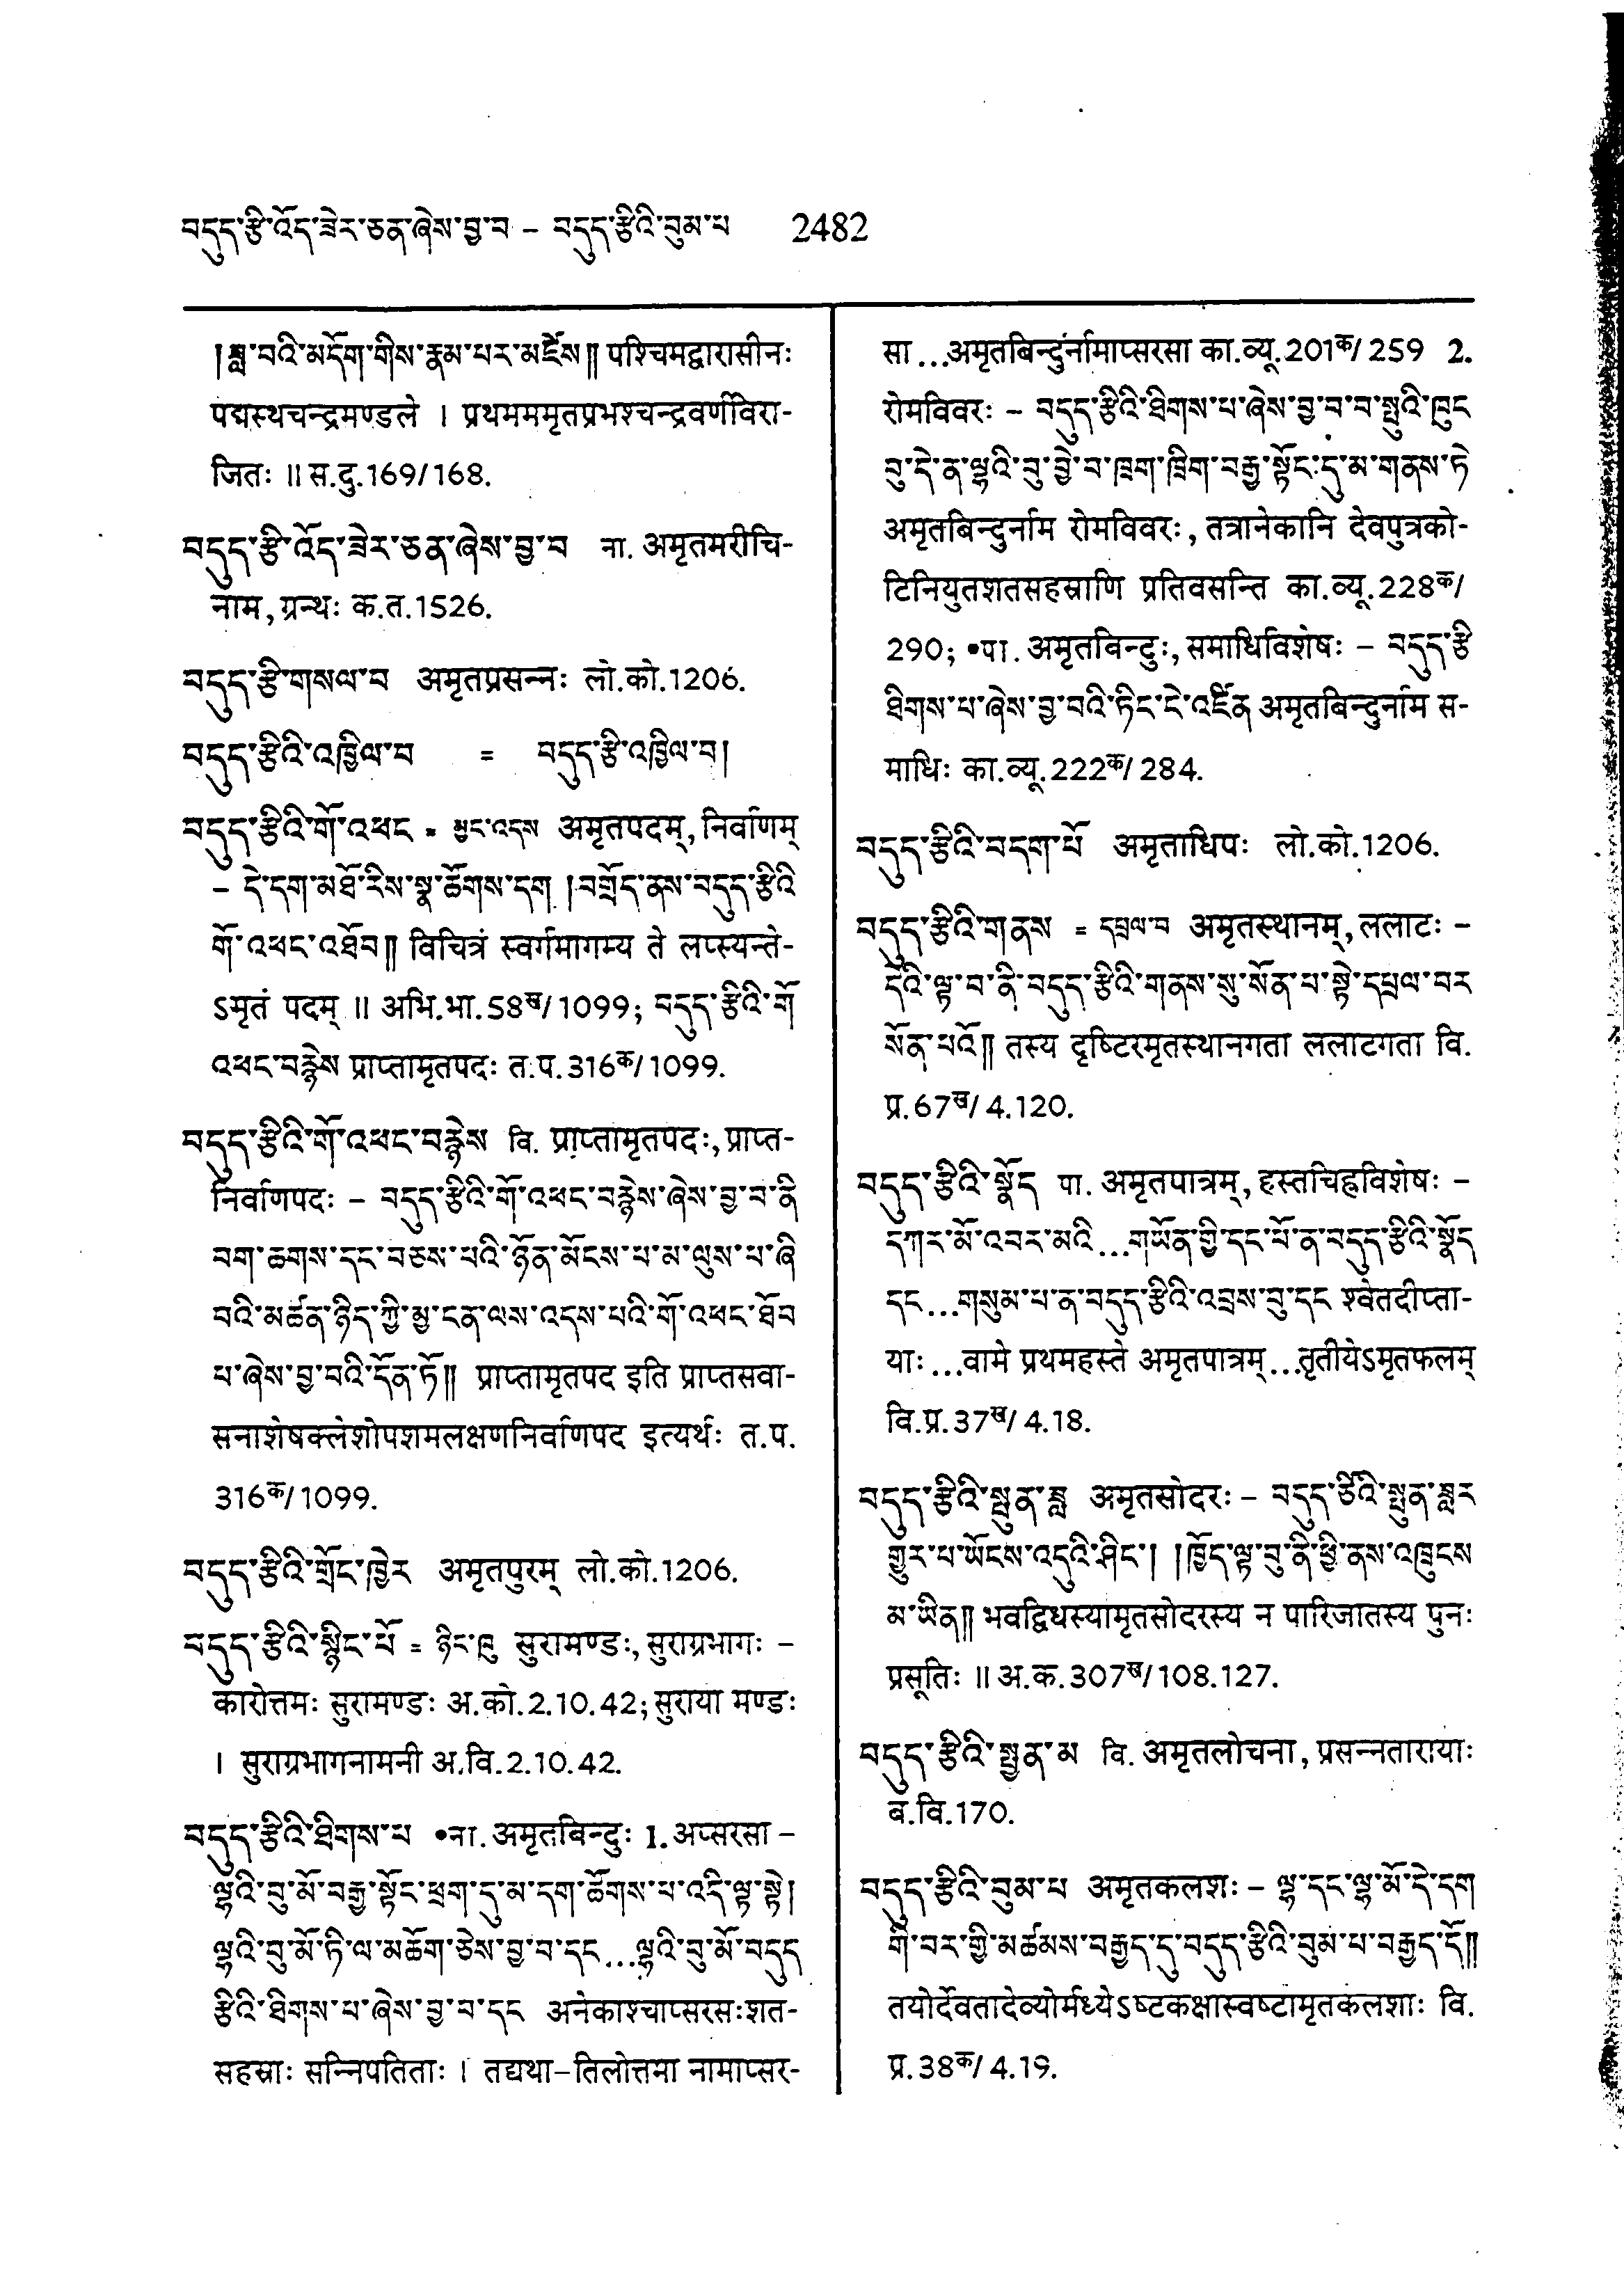 བདུད་རྩི་འོད་ཟེར་ཅན་ཞེས་བྱ་བ – བདུད་རྩིའི་བུམ་པ 2482
།ཟླ་བའི་མདོག་གིས་རྣམ་པར་མཛེས།། पश्चिमद्वारासीनः
पद्मस्थचन्द्रमण्डले । प्रथमममृतप्रभश्चन्द्रवर्णविरा-
जितः ॥ स.दु.169/168.
བདུད་རྩི་འོད་ཟེར་ཅན་ཞེས་བྱ་བ ना. अमृतमरीचि-
नाम, ग्रन्थः क.त.1526.
བདུད་རྩི་གསལ་བ अमृतप्रसन्नः लो.को.1206.
བདུད་རྩིའི་འཁྱིལ་བ = བདུད་རྩི་འཁྱིལ་བ།
བདུད་རྩིའི་གོ་འཕང = མྱང་འདས अमृतपदम्, निर्वाणम्
– དེ་དག་མཐོ་རིས་སྣ་ཚོགས་དག །བགྲོད་ནས་བདུད་རྩིའི
གོ་འཕང་འཐོབ།། विचित्रं स्वर्गमागम्य ते लप्स्यन्ते-
ऽमृतं पदम् ॥ अभि.भा.58ख/1099; བདུད་རྩིའི་གོ
འཕང་བརྙེས प्राप्तामृतपदः त.प.316क/1099.
བདུད་རྩིའི་གོ་འཕང་བརྙེས वि. प्राप्तामृतपदः, प्राप्त-
निर्वाणपदः – བདུད་རྩིའི་གོ་འཕང་བརྙེས་ཞེས་བྱ་བ་ནི
བག་ཆགས་དང་བཅས་པའི་ཉོན་མོངས་པ་མ་ལུས་པ་ཞི
བའི་མཚན་ཉིད་ཀྱི་མྱ་ངན་ལས་འདས་པའི་གོ་འཕང་ཐོབ
པ་ཞེས་བྱ་བའི་དོན་ཏོ།། प्राप्तामृतपद इति प्राप्तसवा-
सनाशेषक्लेशोपशमलक्षणनिर्वाणपद इत्यर्थः त.प.
316क/1099.
བདུད་རྩིའི་གྲོང་ཁྱེར अमृतपुरम् लो.को.1206.
བདུད་རྩིའི་སྙིང་པོ = ཉིང་ཁུ सुरामण्डः, सुराग्रभागः –
कारोत्तमः सुरामण्डः अ.को.2.10.42; सुराया मण्डः
। सुराग्रभागनामनी अ.वि.2.10.42.
བདུད་རྩིའི་ཐིགས་པ •ना. अमृतबिन्दुः 1. अप्सरसा –
ལྷའི་བུ་མོ་བརྒྱ་སྟོང་ཕྲག་དུ་མ་དག་ཚོགས་པ་འདི་ལྟ་སྟེ།
ལྷའི་བུ་མོ་ཏི་ལ་མཆོག་ཅེས་བྱ་བ་དང...ལྷའི་བུ་མོ་བདུད
རྩིའི་ཐིགས་པ་ཞེས་བྱ་བ་དང अनेकाश्चाप्सरसःशत-
सहस्राः सन्निपतिताः । तद्यथा–तिलोत्तमा नामाप्सर-
सा...अमृतबिन्दुर्नामाप्सरसा का.व्यू.201क/259 2.
रोमविवरः – བདུད་རྩིའི་ཐིགས་པ་ཞེས་བྱ་བ་བ་སྤུའི་ཁུང
བུ་དེ་ན་ལྷའི་བུ་བྱེ་བ་ཁྲག་ཁྲིག་བརྒྱ་སྟོང་དུ་མ་གནས་ཏེ
अमृतबिन्दुर्नाम रोमविवरः, तत्रानेकानि देवपुत्रको-
टिनियुतशतसहस्राणि प्रतिवसन्ति का.व्यू.228क/
290; •पा. अमृतविन्दुः, समाधिविशेषः – བདུད་རྩི
ཐིགས་པ་ཞེས་བྱ་བའི་ཏིང་ངེ་འཛིན अमृतबिन्दुर्नाम स-
माधिः का.व्यू.222क/284.
བདུད་རྩིའི་བདག་པོ अमृताधिपः लो.को.1206.
བདུད་རྩིའི་གནས = དཔྲལ་བ अमृतस्थानम्, ललाटः –
དེའི་ལྟ་བ་ནི་བདུད་རྩིའི་གནས་སུ་སོན་པ་སྟེ་དཔྲལ་བར
སོན་པའོ།། तस्य दृष्टिरमृतस्थानगता ललाटगता वि.
प्र.67ख/4.120.
བདུད་རྩིའི་སྣོད पा. अमृतपात्रम्, हस्तचिह्नविशेषः –
དཀར་མོ་འབར་མའི...གཡོན་གྱི་དང་པོ་ན་བདུད་རྩིའི་སྣོད
དང...གསུམ་པ་ན་བདུད་རྩིའི་འབྲས་བུ་དང श्वेतदीप्ता-
याः...वामे प्रथमहस्ते अमृतपात्रम्...तृतीयेऽमृतफलम्
वि.प्र.37ख/4.18.
བདུད་རྩིའི་སྤུན་ཟླ अमृतसोदरः – བདུད་རྩིའི་སྤུན་ཟླར
གྱུར་པ་ཡོངས་འདུའི་ཤིང་། །ཁྱོད་ལྟ་བུ་ནི་ཕྱི་ནས་འཁྲུངས
མ་ཡིན།། भवद्विधस्यामृतसोदरस्य न पारिजातस्य पुनः
प्रसूतिः ॥ अ.क.307ख/108.127.
བདུད་རྩིའི་སྤྱན་མ वि. अमृतलोचना, प्रसन्नतारायाः
ब.वि.170.
བདུད་རྩིའི་བུམ་པ अमृतकलशः – ལྷ་དང་ལྷ་མོ་དེ་དག
གི་བར་གྱི་མཚམས་བརྒྱད་དུ་བདུད་རྩིའི་བུམ་པ་བརྒྱད་དོ།།
तयोर्देवतादेव्योर्मध्येऽष्टकक्षास्वष्टामृतकलशाः वि.
प्र.38क/4.19.